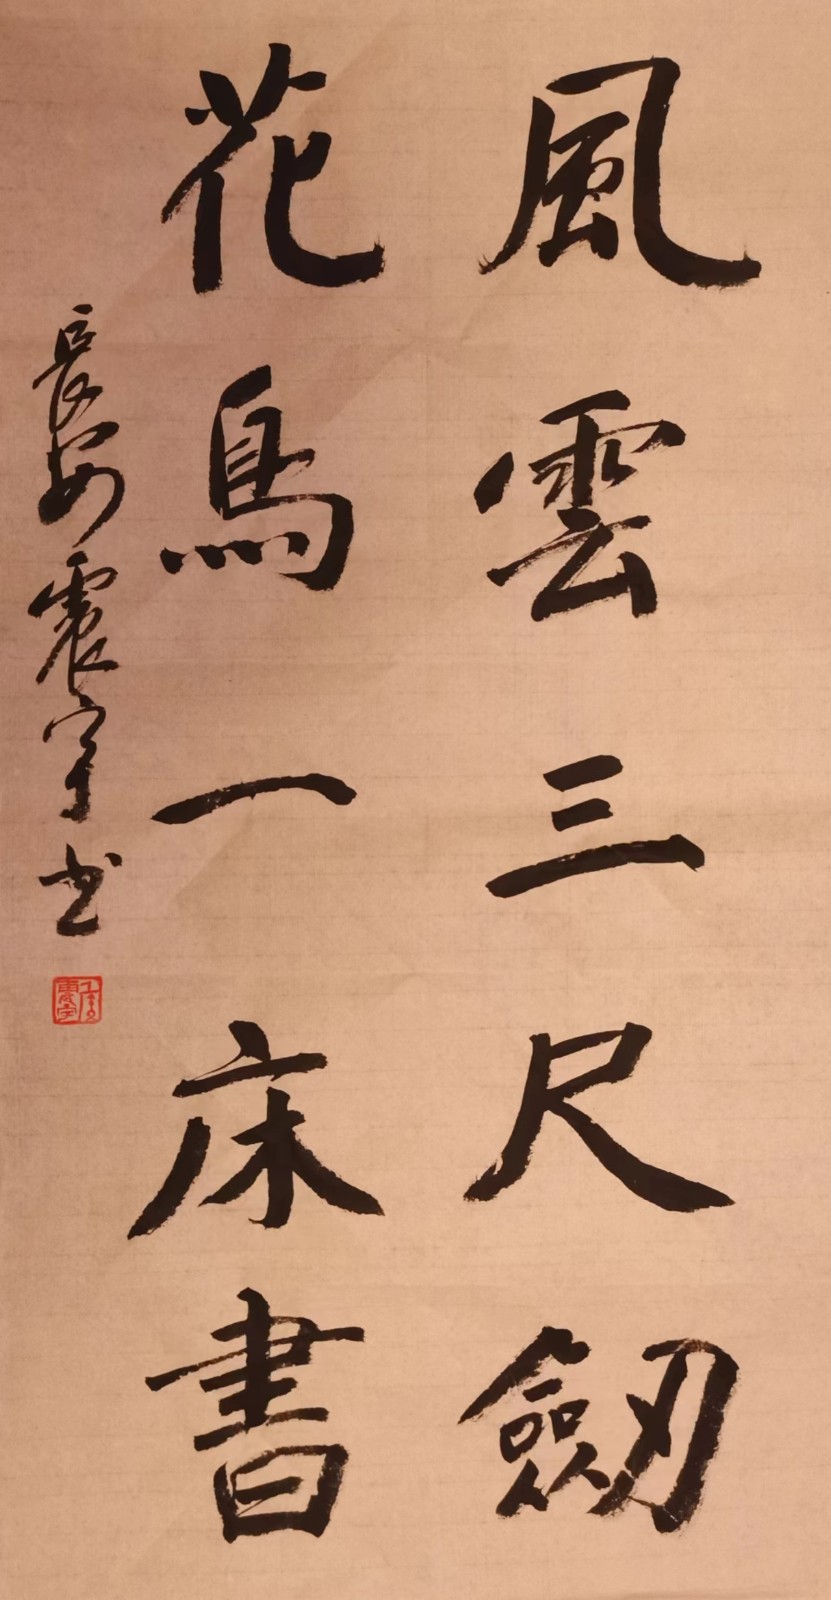 風雲三尺劒
花鳥一床書
長安震宇书